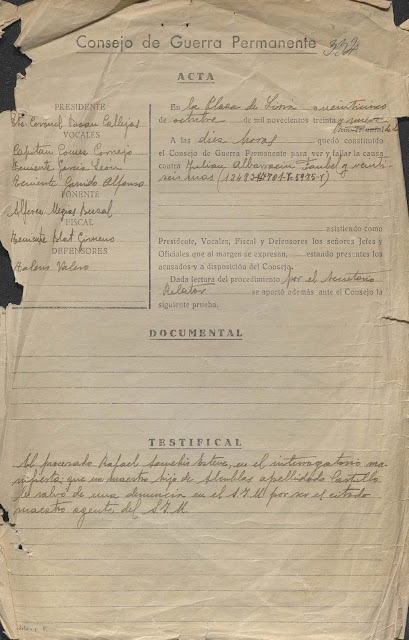 Consejo de Guerra Permanente 332
ACTA
PRESIDENTE
Tte Coronel Casau Callejas
VOCALES
Capitan Comes Cornejo
Teniente García León
Teniente Garrido Alfonso
PONENTE
Alferez Megias
FISCAL
Teniente Giménez
DEFENSORES
Valero
En la Plaza de Liria a veintiuno
de octubre de mil novecientos treinta y nueve
A las diez horas quedó constituído
el Consejo de Guerra Permanente para ver y fallar la causa
contra Julian Albarracin y veinti-
seis mas
asistiendo como
Presidente, Vocales, Fiscal y Defensores los señores Jefes y
Oficiales que al margen se expresan, estando presentes los
acusados y a disposición del Consejo.
Dada lectura del procedimiento por el secretario
Relator se aportó además ante el Consejo la
siguiente prueba.
DOCUMENTAL
TESTIFICAL
El procesado Rafael Sanchis Esteve, en el interrogatorio ma-
nifiesta que un maestro hijo de apellidado Castillo
le salvó de una denuncia en el S.I.M. por ser el citado
maestro agente del S.I.M